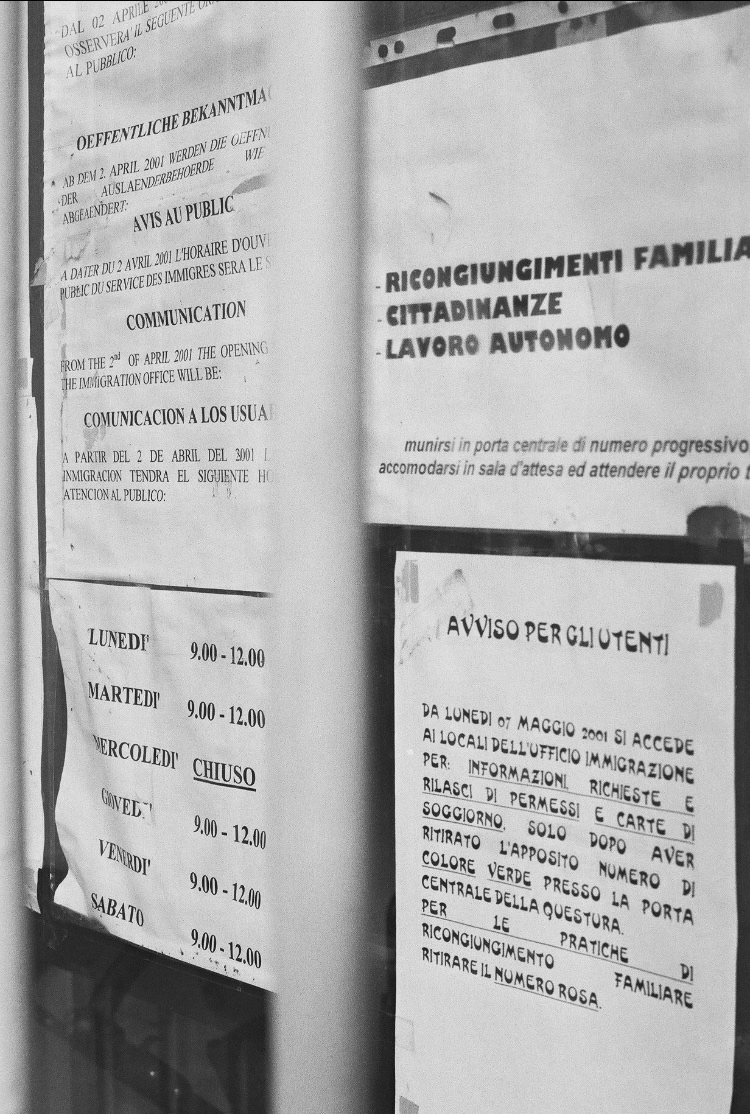 DAL 02 APRILE
OSSERVERA' IL SEGUENTE
AL PUBBLICO:
OEFFENTLICHE BEKANNTMA
AB DEM 2. APRIL 2001 WERDEN DIE OEFFN
DER AUSLAENDERBEHOERDE WIE
ABGEAENDERT:
AVIS AU PUBLIC
A DATER DU 2 AVRIL 2001 L'HORAIRE D'OUV
PUBLIC DU SERVICE DES IMMIGRES SERA LE S
COMMUNICATION
FROM THE 2nd OF APRIL 2001 THE OPENING
THE IMMIGRATION OFFICE WILL BE:
COMUNICACION A LOS USUA
A PARTIR DEL 2 DE ABRIL DEL 3001 L
INMIGRACION TENDRA EL SIGUIENTE HO
ATENCION AL PUBLICO:
LUNEDI' 9.00 - 12.00
MARTEDI' 9.00 - 12.00
MERCOLEDI' CHIUSO
GIOVEDI' 9.00 - 12.00
VENERDI' 9.00 - 12.00
SABATO 9.00 - 12.00
- RICONGIUNGIMENTI FAMILIA
- CITTADINANZE
- LAVORO AUTONOMO
munirsi in porta centrale di numero progressivo
accomodarsi in sala d'attesa ed attendere il proprio t
AVVISO PER GLI UTENTI
DA LUNEDI 07 MAGGIO 2001 SI ACCEDE
AI LOCALI DELL'UFFICIO IMMIGRAZIONE
PER: INFORMAZIONI, RICHIESTE E
RILASCI DI PERMESSI E CARTE DI
SOGGIORNO, SOLO DOPO AVER
RITIRATO L'APPOSITO NUMERO DI
COLORE VERDE PRESSO LA PORTA
CENTRALE DELLA QUESTURA.
PER LE PRATICHE DI
RICONGIUNGIMENTO FAMILIARE
RITIRARE IL NUMERO ROSA.